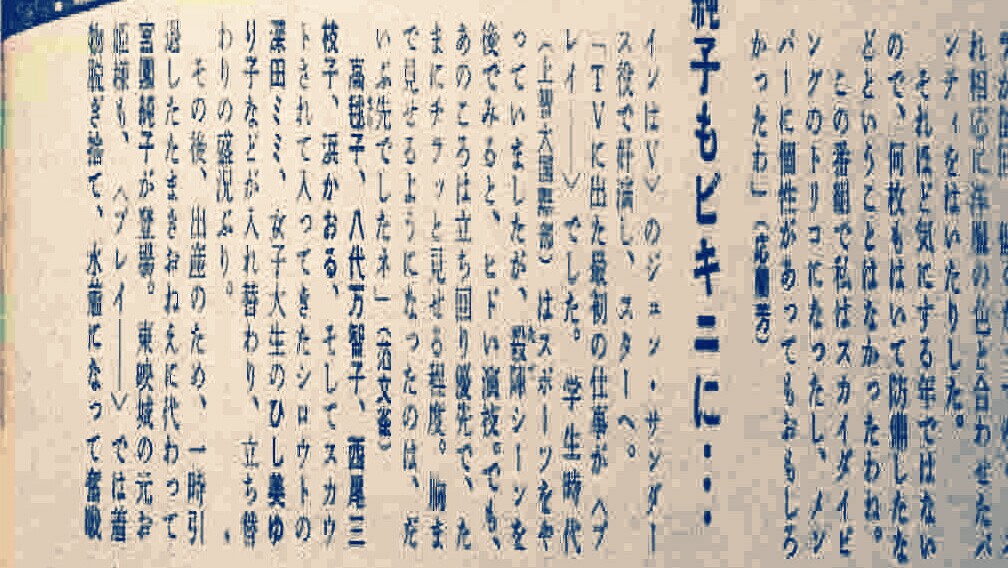 れ相応に洋服の色と合わせたパ
ンティをはいたりした。
それほど気にする年ではない
ので、何枚もはいて防備したな
どということはなかったわね。
この番組で私はスカイダイビ
ングのトリコになったし、メン
バーに個性があってもおもしろ
かったわ」
純子もビキニに・・・
インはV〉のジュン・サンダー
ス役で好演し、スターへ。
「TVに出た最初の仕事が〈プ
レイ──〉でした。学生時代
はスポーツをや
っていましたが、殺陣シーンを
後でみると、ヒドい演技。でも、
あのころは立ち回り優先で、た
まにチラッと見せる程度。胸ま
で見せるようになったのは、だ
いぶ先でしたネ」
高毬子、八代万智子、西尾三
枝子、浜かおる、そしてスカウ
トされて入ってきたシロウトの
深田ミミ、女子大生のひし美ゆ
り子などが入れ替わり、立ち替
わりの盛況ぶり。
その後、出産のため、一時引
退したたまきおねえに代わって
宮園純子が登場。東映城の元お
姫様も、〈プレイ──〉では着
物脱ぎ捨て、水着になって奮戦